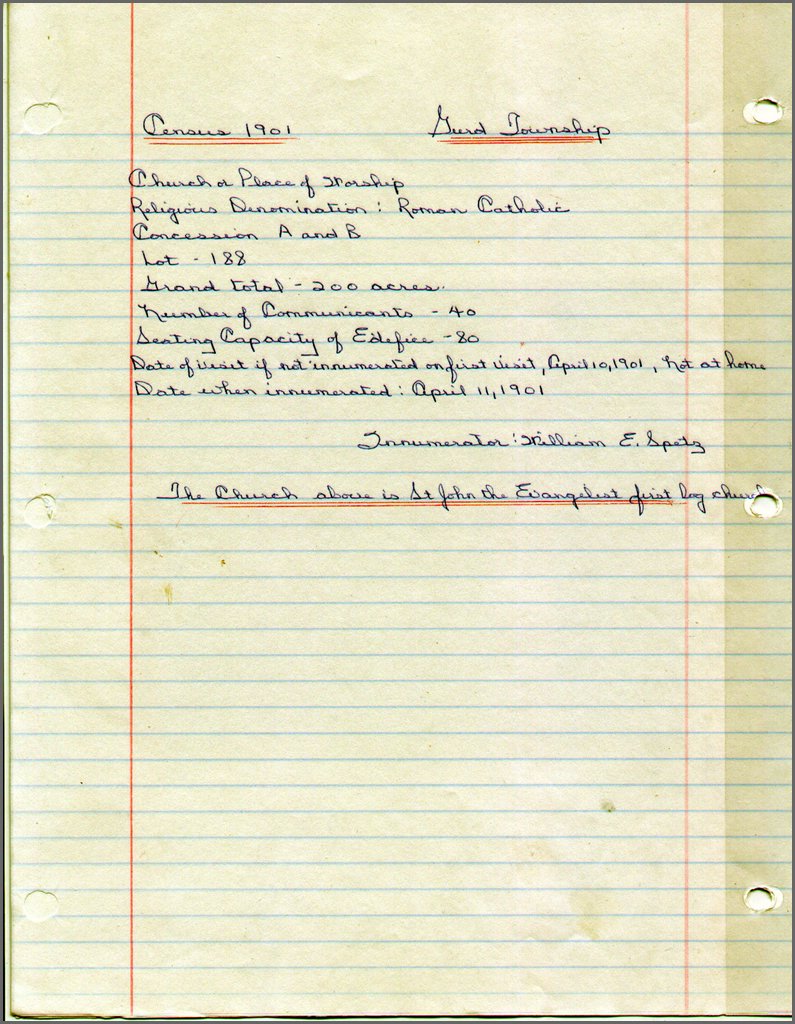 Census 1901 Gurd Township
Church or Place of Worship
Religious Denomination: Roman Catholic
Concession A and B
Lot - 188
Grand total - 200 acres.
Number of Communicants - 40
Seating Capacity of Edefice - 80
Date of visit if not innumerated on first visit, April 10, 1901, Not at home
Date when innumerated: April 11, 1901
Innumerator: William E. Spetz
The Church above is St John the Evangelist first log church